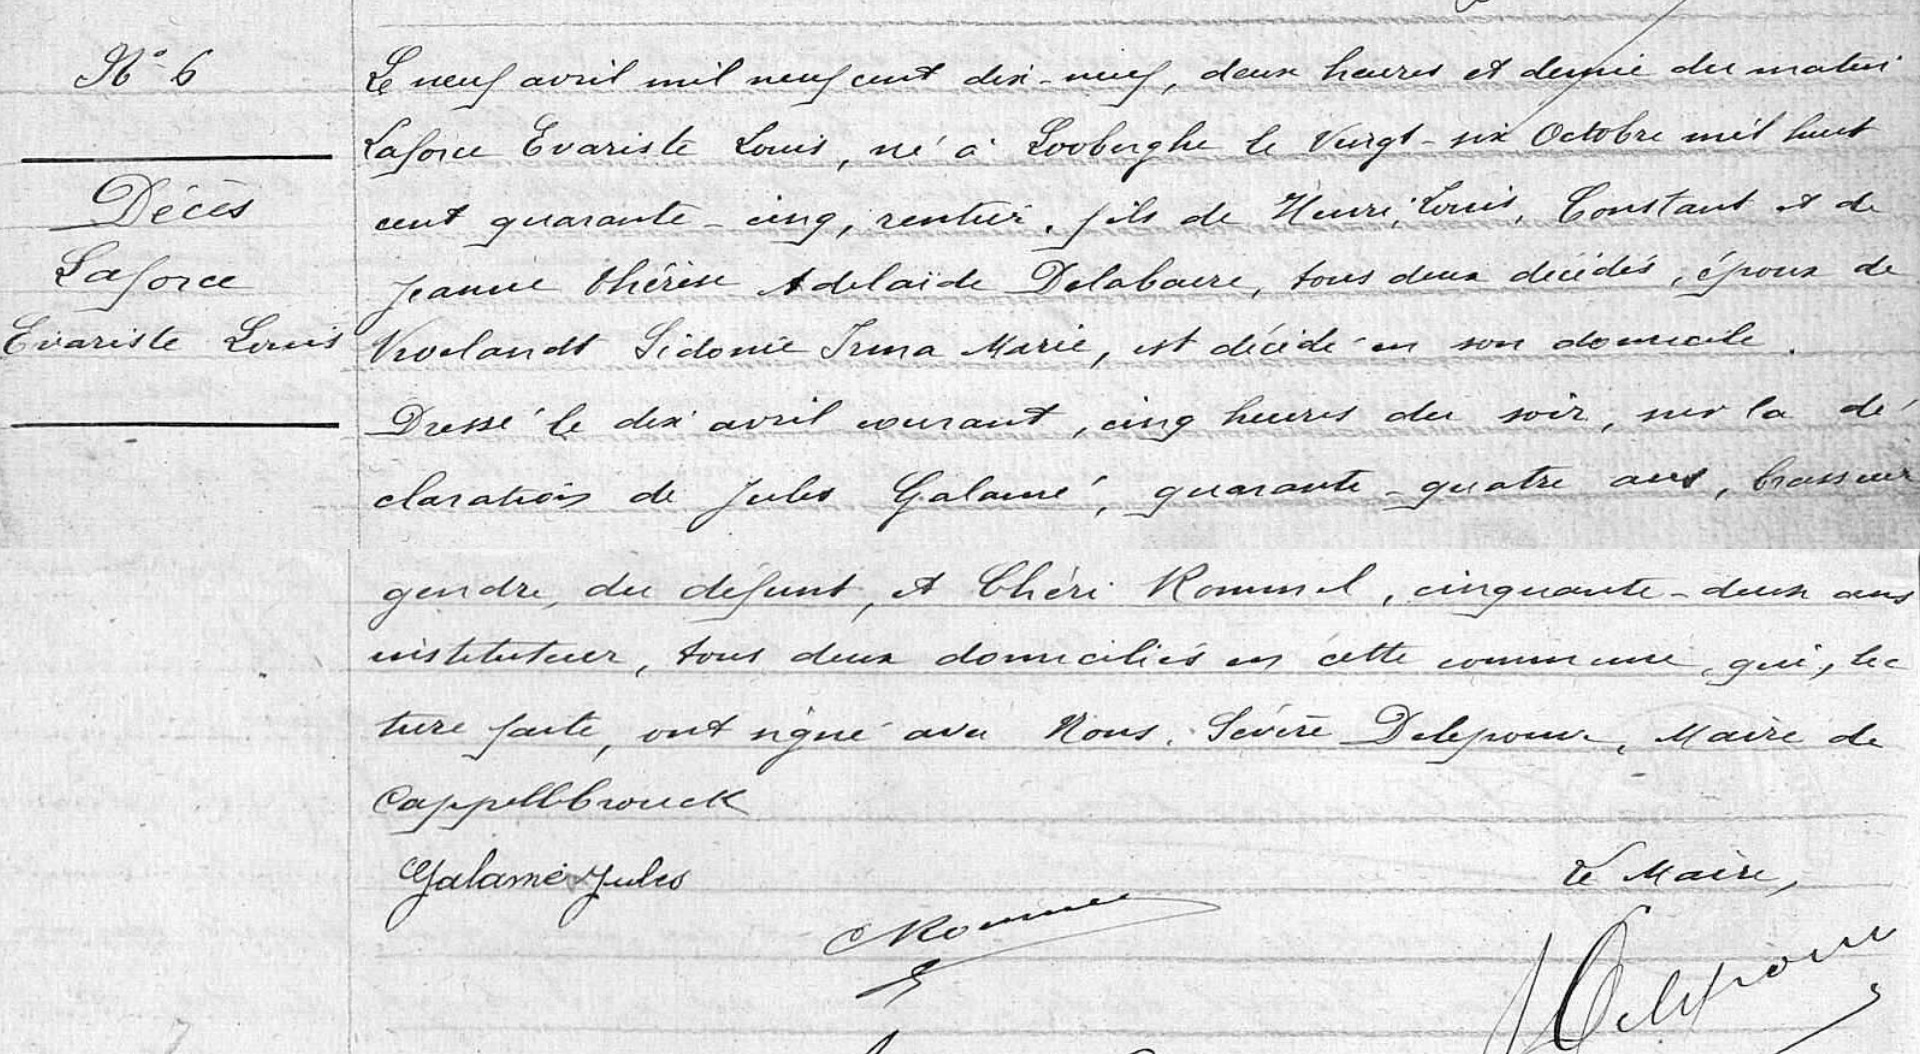 N° 6
Décès
Laforce
Evariste Louis
Le neuf avril mil neuf cent dix-neuf, deux heures et demie du matin
Laforce Evariste Louis, né à Looberghe le Vingt-six Octobre mil huit
cent quarante-cinq, rentier, fils de Henri, Louis, Constant et de
Jeanne thérèse Adelaïde Delabaere, tous deux décédés, époux de
Vroelandt Sidonie Irma Marie, est décédé en son domicile.
Dressé le dix avril courant, cinq heures du soir, sur la dé
claration de Jules Galamé, quarante-quatre ans, brasseur
gendre, du défunt, et Chéri Rommel, cinquante-deux ans
instituteur, tous deux domiciliés en cette commune, qui, lec
ture faite, ont signé avec Nous, Sévère Delepouve, Maire de
Cappellebrouck
Galamé Jules
Le Maire,
C Rommel
Delepouve